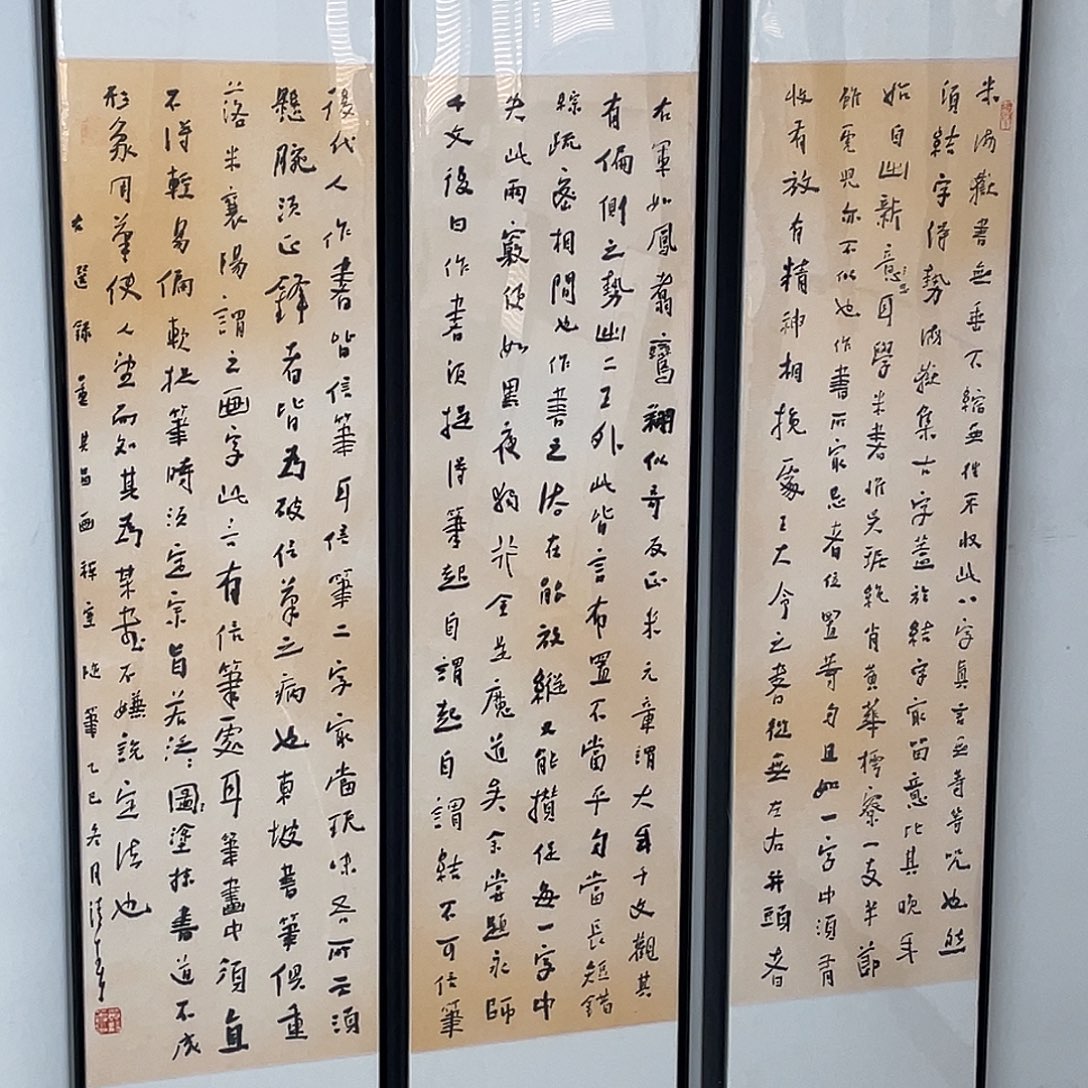 米海嶽書無垂不縮無往不收此八字真言無等等咒也然
須結字得勢海嶽集古字蓋於結字最留意比其晚年
始自出新意耳學米書者惟吳琚絕肖黃華樗寮一支半節
雖虎兒亦不似也作書所最忌者位置等勻且如一字中須有
收有放有精神相挽處王大令之書從無左右并頭者
右軍如鳳翥鸞翔似奇反正米元章謂大年千文觀其
有偏側之勢出二王外此皆言布置不當平勻當長短錯
綜疏密相間也作書之法在能放縱又能攢促每一字中
失此兩竅便如黑夜獨行全是魔道矣余嘗題永師
千文後曰作書須提得筆起自謂起自謂結不可信筆
後代人作書皆信筆耳信筆二字最當玩味吾所云須
懸腕須正鋒者皆為破信筆之病也東坡書筆俱重
落米襄陽謂之畫字此言有信筆處耳筆畫中須直
不得輕易偏軟捉筆時須定宗旨若泛泛圖塗抹書道不成
形象用筆使人望而知其為某書不嫌說定法也
右選錄董其昌畫禪室隨筆乙巳冬月